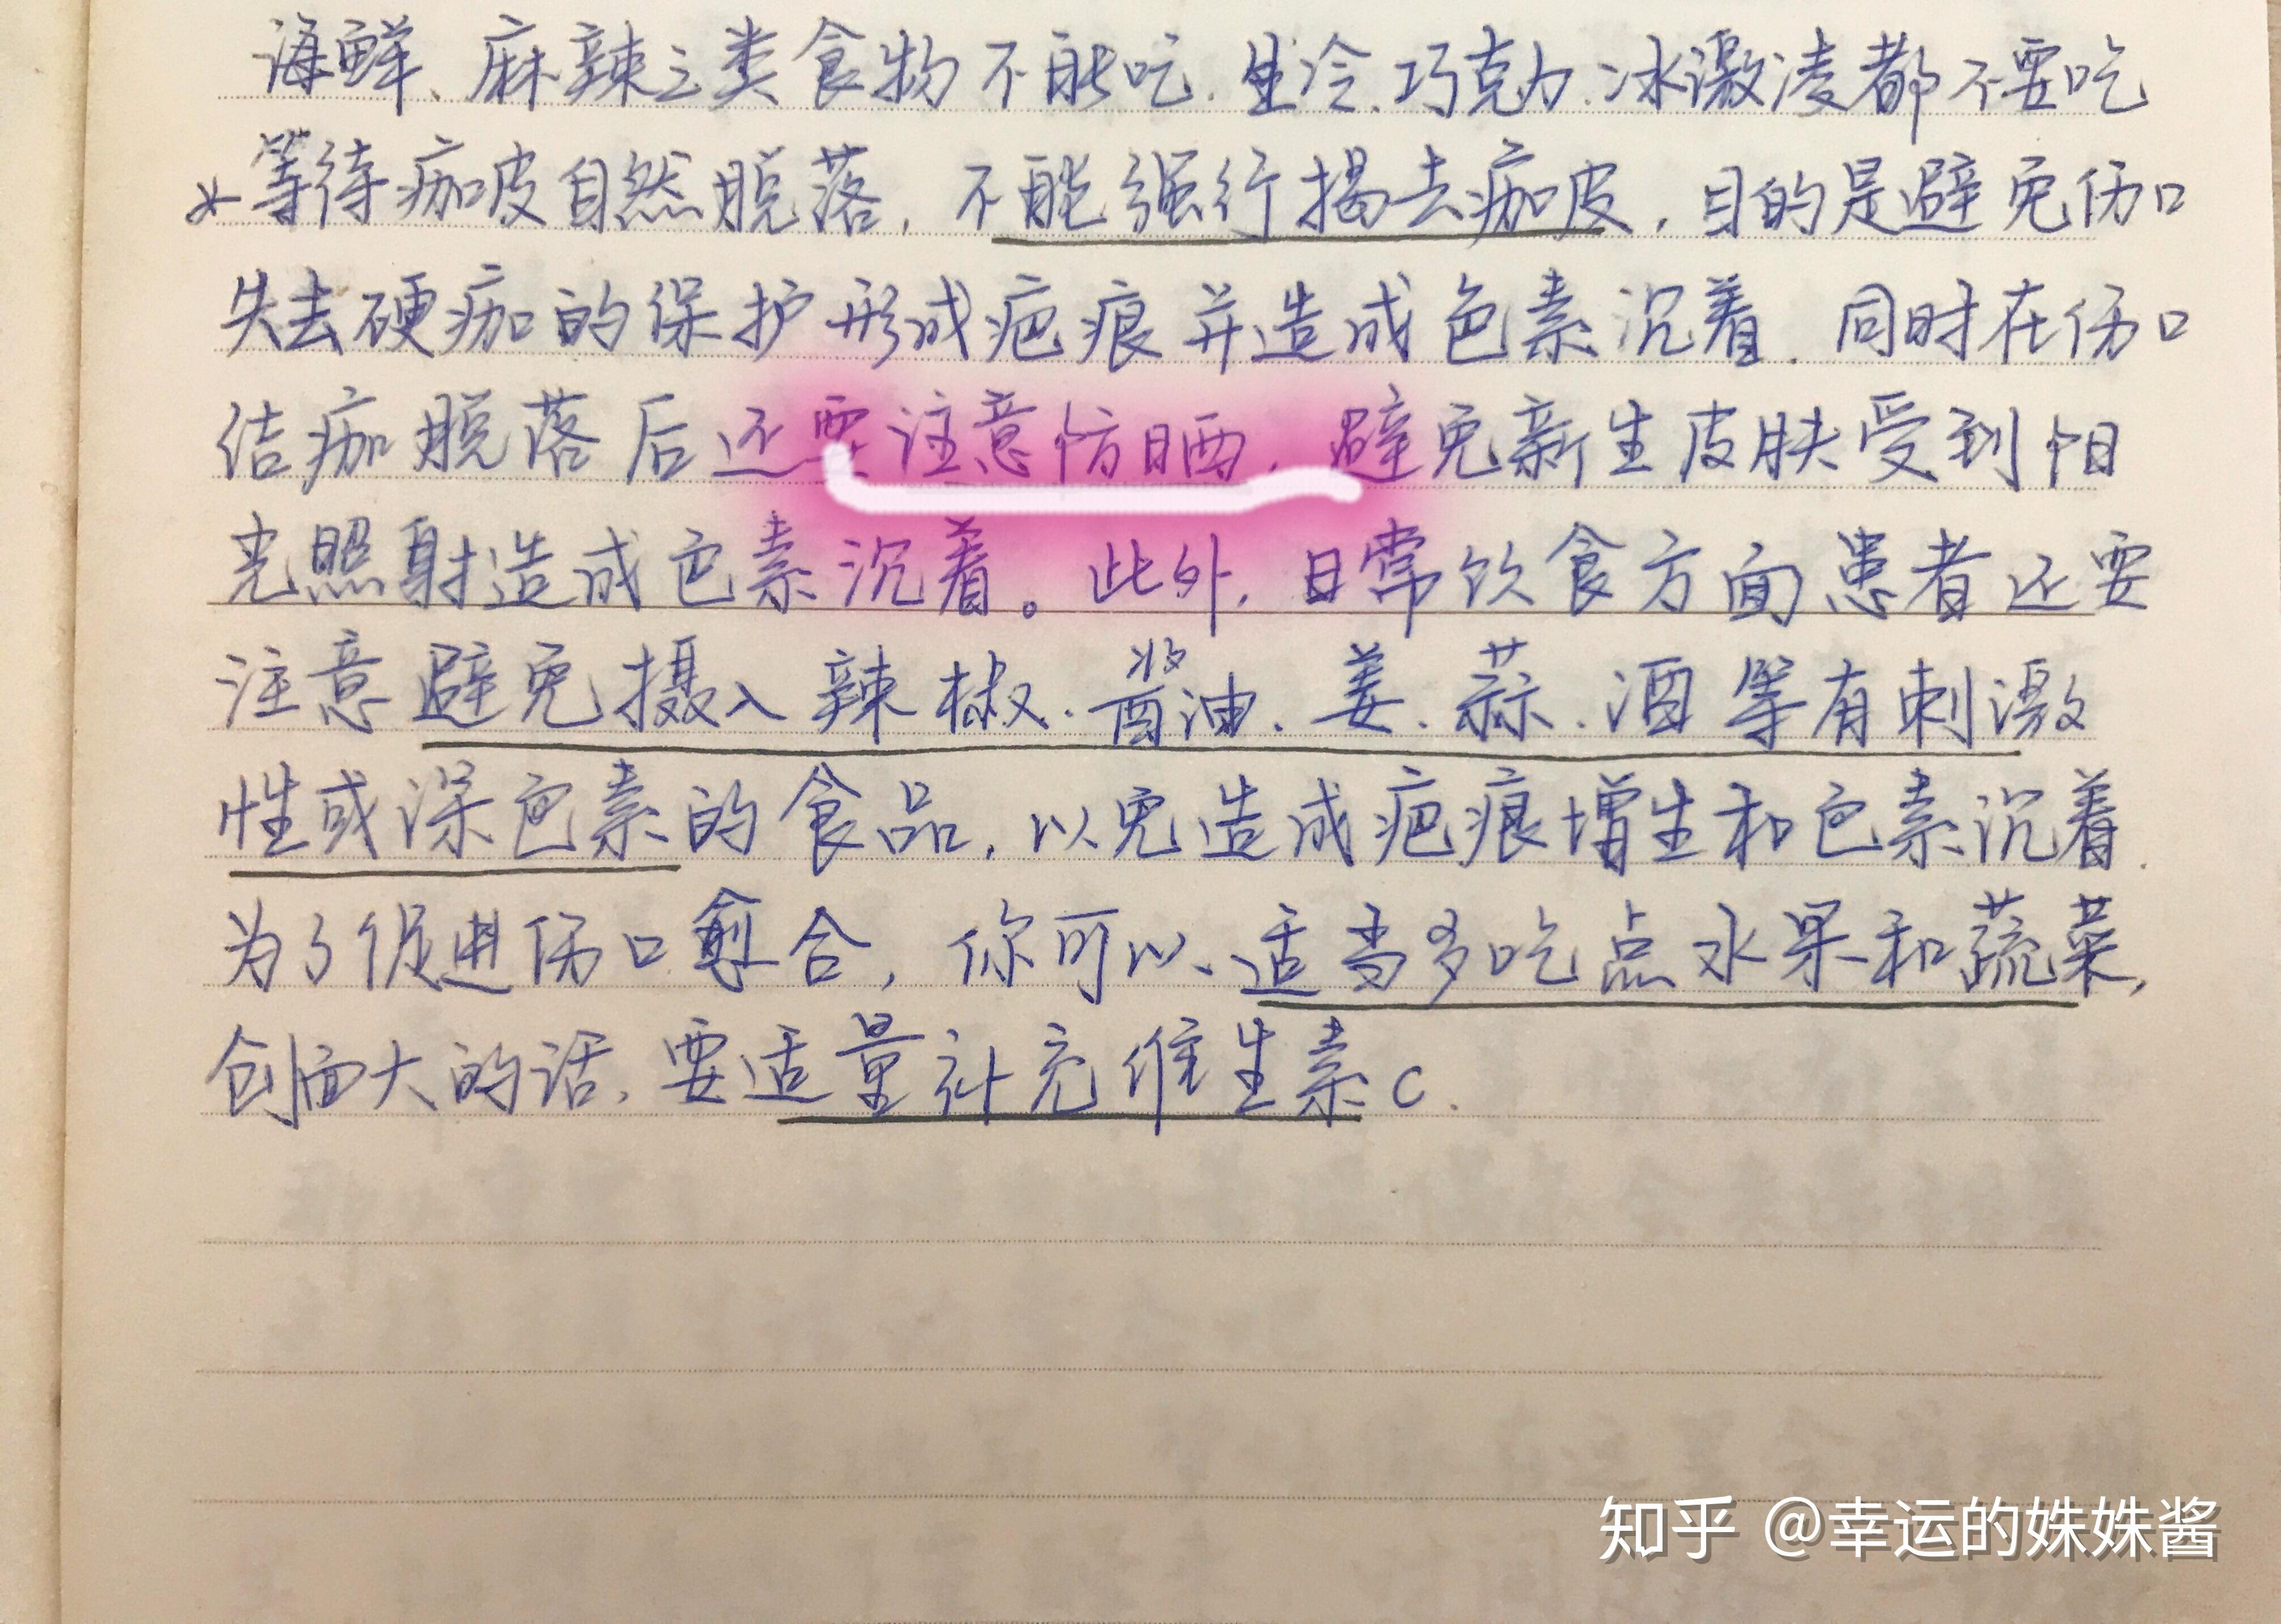 海鲜、麻辣之类食物不能吃.生冷.巧克力.冰激凌都不要吃
等待痂皮自然脱落,不能强行揭去痂皮,目的是避免伤口
失去硬痂的保护形成疤痕并造成色素沉着.同时在伤口
结痂脱落后还要注意防晒,避免新生皮肤受到阳
光照射造成色素沉着。此外,日常饮食方面患者还要
注意避免摄入辣椒.酱油.姜.蒜.酒等有刺激
性或深色素的食品,以免造成疤痕增生和色素沉着.
为了促进伤口愈合,你可以、适当多吃点水果和蔬菜,
创面大的话,要适量补充维生素C.
知乎 @幸运的姝姝酱